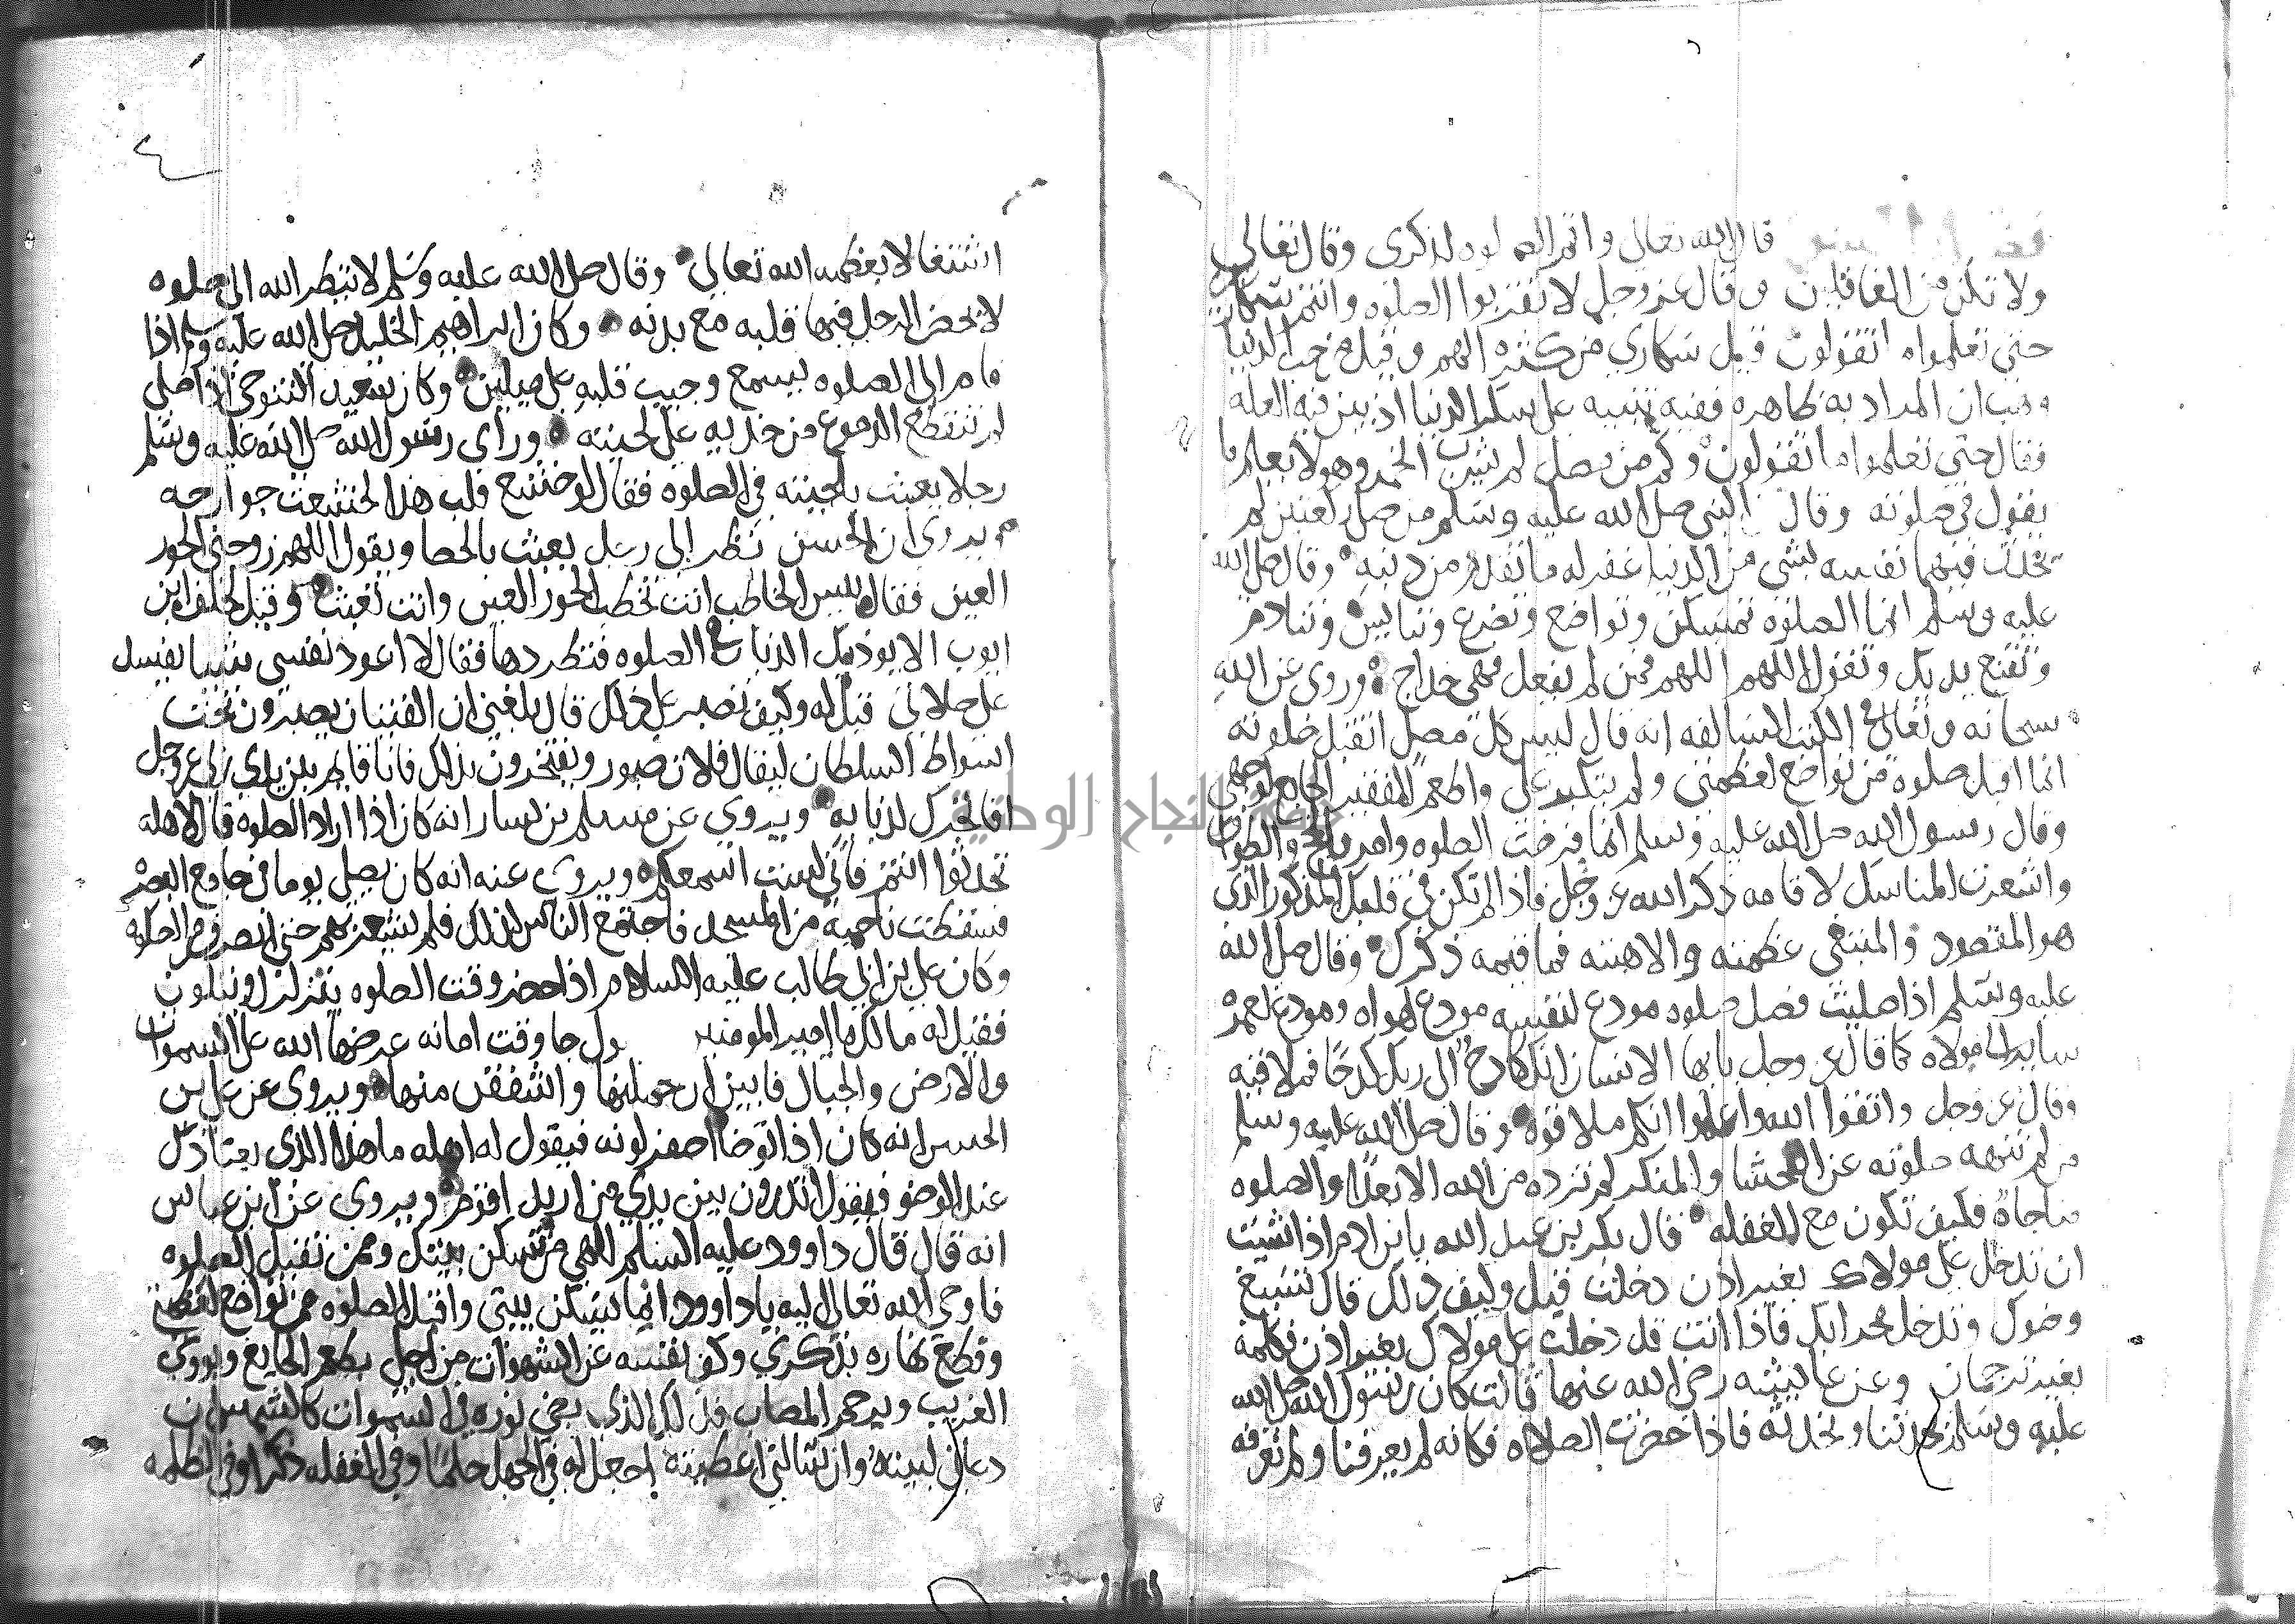 قال الله تعالى واقم الصلوه لذكرى وقال تعالى
ولا تكن من الغافلين وقال عز وجل لا تقربوا الصلوه وانتم سكارى
حتى تعلموا ما تقولون قيل سكارى من كثره الهم وقيل من حب الدنيا
وهب ان المراد به ظاهره ففيه تنبيه على سكر الدنيا اذ بين فيه العله
فقال حتى تعلموا ما تقولون وكم من مصل لم يشرب الخمر وهو لا يعلم ما
يقول فى صلوته وقال النبى صلى الله عليه وسلم من صلى ركعتين لم
يحدث فيهما نفسه بشى من الدنيا غفر له ما تقدم من ذنبه وقال صلى الله
عليه وسلم انما الصلوه تمسكن وتواضع وتضرع وتبايس وتنادم
وتقنع يديك وتقول اللهم اللهم فمن لم يفعل فهى خداج وروى عن الله
سبحانه وتعالى فى الكتب السالفه انه قال ليس كل مصل اتقبل صلوته
انما اقبل صلوه من تواضع لعظمتى ولم يتكبر على واطعم الفقير الجايع لوجهى
وقال رسول الله صلى الله عليه وسلم انما فرضت الصلوه وامر بالحج والطواف
واشعرت المناسك لاقامه ذكر الله عز وجل فاذا لم تكن فى قلبك المذكور الذى
هو المقصود والمبتغى عظمته ولا هيبته فما قيمه ذكرك وقال صلى الله
عليه وسلم اذا صليت فصل صلوه مودع لنفسه مودع لهواه ومودع لعمره
ساير الى مولاه كما قال عز وجل يايها الانسان انك كادح الى ربك كدحا فملاقيه
وقال عز وجل واتقوا الله واعلموا انكم ملاقوه وقال صلى الله عليه وسلم
من لم تنهه صلوته عن الفحشا والمنكر لم تزده من الله الا بعدا والصلوه
مناجاه فكيف تكون مع الغفله قال بكر بن عبد الله يا بن ادم اذا شيت
ان تدخل على مولاك بغير اذن دخلت قيل وكيف ذلك قال تسبغ
وضوك وتدخل محرابك فاذا انت قد دخلت على مولاك بغير اذن فكلمه
بغير ترجمان وعن عايشه رضى الله عنها قالت كان رسول الله صلى الله
عليه وسلم يحدثنا ونحدثه فاذا حضرت الصلاه فكانه لم يعرفنا ولم نعرفه
٤
اشتغالا بعظمه الله تعالى وقال صلى الله عليه وسلم لا ينظر الله الى صلوه
لا يحضر الرجل فيها قلبه مع بدنه وكان ابراهيم الخليل صلى الله عليه وسلم اذا
قام الى الصلوه يسمع وجيب قلبه على ميلين وكان سعيد التنوخى اذا صلى
لم تنقطع الدموع من خديه على لحيته وراى رسول الله صلى الله عليه وسلم
رجلا يعبث بلحيته فى الصلوه فقال لو خشع قلب هذا لخشعت جوارحه
ويروى ان الحسن نظر الى رجل يعبث بالحصا ويقول اللهم زوجنى الحور
العين فقال بيس الخاطب انت تخطب الحور العين وانت تعبث وقيل لخلف ابن
ايوب الا يوذيك الذباب فى الصلوه فتطردها فقال لا اعود نفسى شيا يفسد
على صلاتى قيل له وكيف تصبر على ذلك قال بلغنى ان الفساق يصبرون تحت
اسواط السلطان ليقال فلان صبور ويفتخرون بذلك فانا قايم بين يدى ربى عز وجل
افاتحرك لذبابه ويروى عن مسلم بن يسار انه كان اذا اراد الصلوه قال لاهله
تحدثوا انتم فانى لست اسمعكم ويروى عنه انه كان يصلى يوما فى جامع البصره
فسقطت ناحيه من المسجد فاجتمع الناس لذلك فلم يشعر بهم حتى انصرف من الصلوه
وكان على بن ابى طالب عليه السلام اذا حضر وقت الصلوه يتزلزل ويتلون
فقيل له مالك يا امير المومنين جا وقت امانه عرضها الله على السموات
والارض والجبال فابين ان يحملنها واشفقن منها ويروى عن على بن
الحسين انه كان اذا توضا اصفر لونه فيقول له اهله ما هذا الذى يعتادك
عند الوضو فيقول اتدرون بين يدى من اريد اقوم ويروى عن ابن عباس
انه قال قال داوود عليه السلم الهى من يسكن بيتك وممن تقبل الصلوه
فاوحى الله تعالى اليه يا داوود انما يسكن بيتى واقبل الصلوه ممن تواضع لعظمتى
وقطع نهاره بذكرى وكف نفسه عن الشهوات من اجلى يطعم الجايع ويووى
الغريب ويرحم المصاب فذلك الذى يضى نوره فى السموات كالشمس ان
دعانى لبيته وان سالنى اعطيته اجعل له فى الجهل حلما وفى الغفله ذكرا وفى الظلمه
جامعة النجاح الوطنية